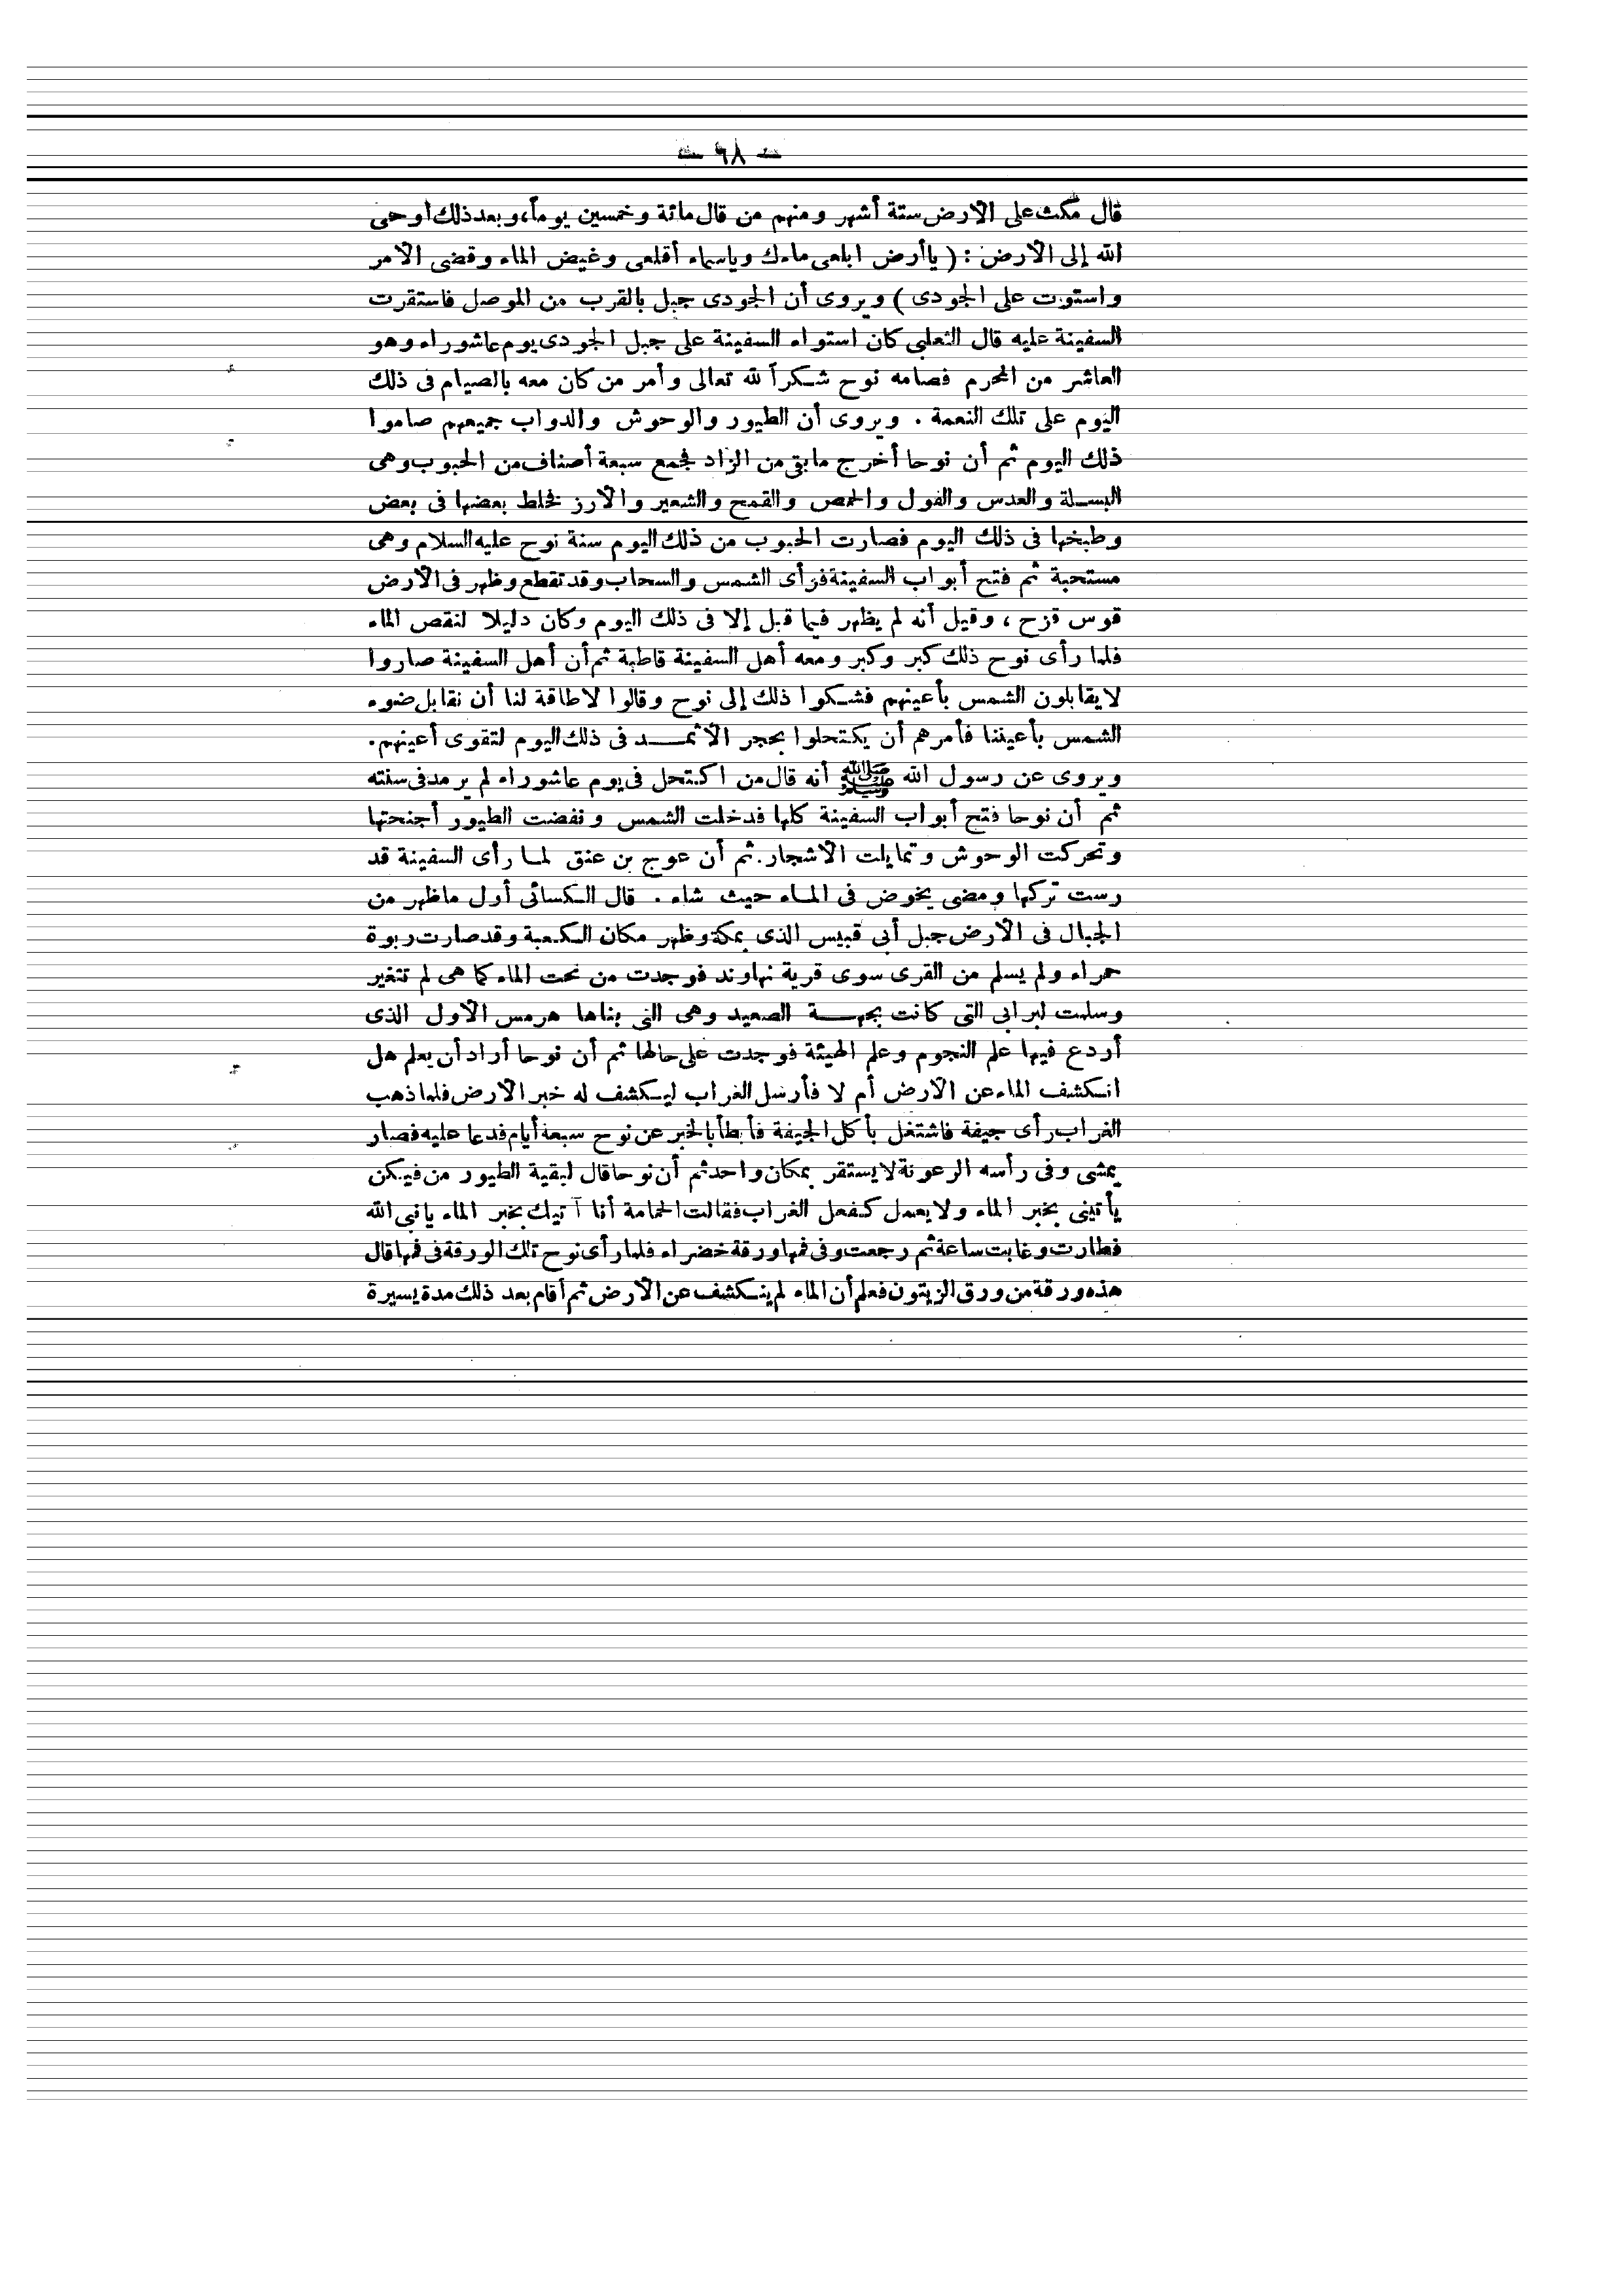 — ٦٨ —
قال مكث على الارض ستة أشهر ومنهم من قال مائة وخمسين يوماً، وبعد ذلك أوحى
الله إلى الأرض : ( يا أرض ابلعى ماءك وياسماء أقلعى وغيض الماء وقضى الامر
واستوت على الجودى ) ويروى أن الجودى جبل بالقرب من الموصل فاستقرت
السفينة عليه قال الثعلبى كان استواء السفينة على جبل الجودى يوم عاشوراء وهو
العاشر من المحرم فصامه نوح شكراً لله تعالى وأمر من كان معه بالصيام فى ذلك
اليوم على تلك النعمة . ويروى أن الطيور والوحوش والدواب جميعهم صاموا
ذلك اليوم ثم أن نوحا أخرج مابقى من الزاد فجمع سبعة أصناف من الحبوب وهى
البسلة والعدس والفول والحمص والقمح والشعير والأرز فخلط بعضها فى بعض
وطبخها فى ذلك اليوم فصارت الحبوب من ذلك اليوم سنة نوح عليه السلام وهى
مستحبة ثم فتح أبواب السفينة فرأى الشمس والسحاب وقد تقطع وظهر فى الأرض
قوس قزح ، وقيل أنه لم يظهر فيما قبل إلا فى ذلك اليوم وكان دليلا لنقص الماء
فلما رأى نوح ذلك كبر وكبر ومعه أهل السفينة قاطبة ثم أن أهل السفينة صاروا
لا يقابلون الشمس بأعينهم فشكوا ذلك إلى نوح وقالوا لاطاقة لنا أن نقابل ضوء
الشمس بأعيننا فأمرهم أن يكتحلوا بحجر الأثمد فى ذلك اليوم لتقوى أعينهم.
ويروى عن رسول الله ﷺ أنه قال من اكتحل فى يوم عاشوراء لم يرمد فى سنته
ثم أن نوحا فتح أبواب السفينة كلها فدخلت الشمس ونفضت الطيور أجنحتها
وتحركت الوحوش وتمايلت الأشجار. ثم أن عوج بن عنق لما رأى السفينة قد
رست تركها ومضى يخوض فى الماء حيث شاء . قال الكسائى أول ماظهر من
الجبال فى الأرض جبل أبى قبيس الذى بمكة وظهر مكان الكعبة وقد صارت ربوة
حمراء ولم يسلم من القرى سوى قرية نهاوند فوجدت من تحت الماء كما هى لم تتغير
وسلمت لبرابى التى كانت بجهة الصعيد وهى التى بناها هرمس الأول الذى
أردع فيها علم النجوم وعلم الهيئة فوجدت على حالها ثم أن نوحا أراد أن يعلم هل
انكشف الماء عن الأرض أم لا فأرسل الغراب ليكشف له خبر الأرض فلما ذهب
الغراب رأى جيفة فاشتغل بأكل الجيفة فأبطأ بالخبر عن نوح سبعة أيام فدعا عليه فصار
يمشى وفى رأسه الرعونة لا يستقر بمكان واحد ثم أن نوحا قال لبقية الطيور من فيكن
يأتينى بخبر الماء ولا يعمل كفعل الغراب فقالت الحمامة أنا آتيك بخبر الماء يا نبى الله
فطارت وغابت ساعة ثم رجعت وفى فمها ورقة خضراء فلما رأى نوح تلك الورقة فى فمها قال
هذه ورقة من ورق الزيتون فعلم أن الماء لم ينكشف عن الأرض ثم أقام بعد ذلك مدة يسيرة